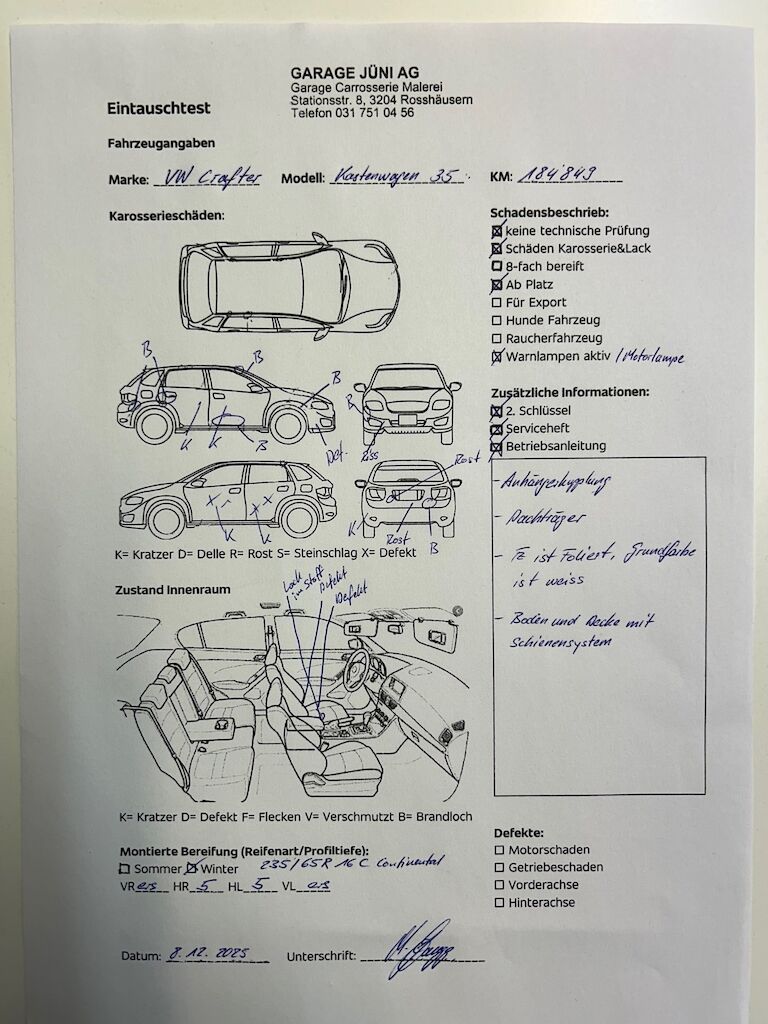 GARAGE JÜNI AG
Garage Carrosserie Malerei
Stationsstr. 8, 3204 Rosshäusern
Telefon 031 751 04 56
Eintauschtest
Fahrzeugangaben
Marke: VW Crafter Modell: Kastenwagen 35 KM: 184'849
Karosserieschäden:
B
B
B
K
K
B
Def.
B
Riss
Rost
K
K
K
Rost
B
K= Kratzer D= Delle R= Rost S= Steinschlag X= Defekt
Zustand Innenraum
Loch
im Stoff
Defekt
Defekt
K= Kratzer D= Defekt F= Flecken V= Verschmutzt B= Brandloch
Montierte Bereifung (Reifenart/Profiltiefe):
Sommer Winter 235/65R 16 C Continental
VR ers HR 5 HL 5 VL ers
Datum: 8.12.2025 Unterschrift:
Schadensbeschrieb:
keine technische Prüfung
Schäden Karosserie&Lack
8-fach bereift
Ab Platz
Für Export
Hunde Fahrzeug
Raucherfahrzeug
Warnlampen aktiv / Motorlampe
Zusätzliche Informationen:
2. Schlüssel
Serviceheft
Betriebsanleitung
- Anhängerkupplung
- Dachträger
- Fz ist Foliert, Grundfarbe
ist weiss
- Boden und Decke mit
Schienensystem
Defekte:
Motorschaden
Getriebeschaden
Vorderachse
Hinterachse